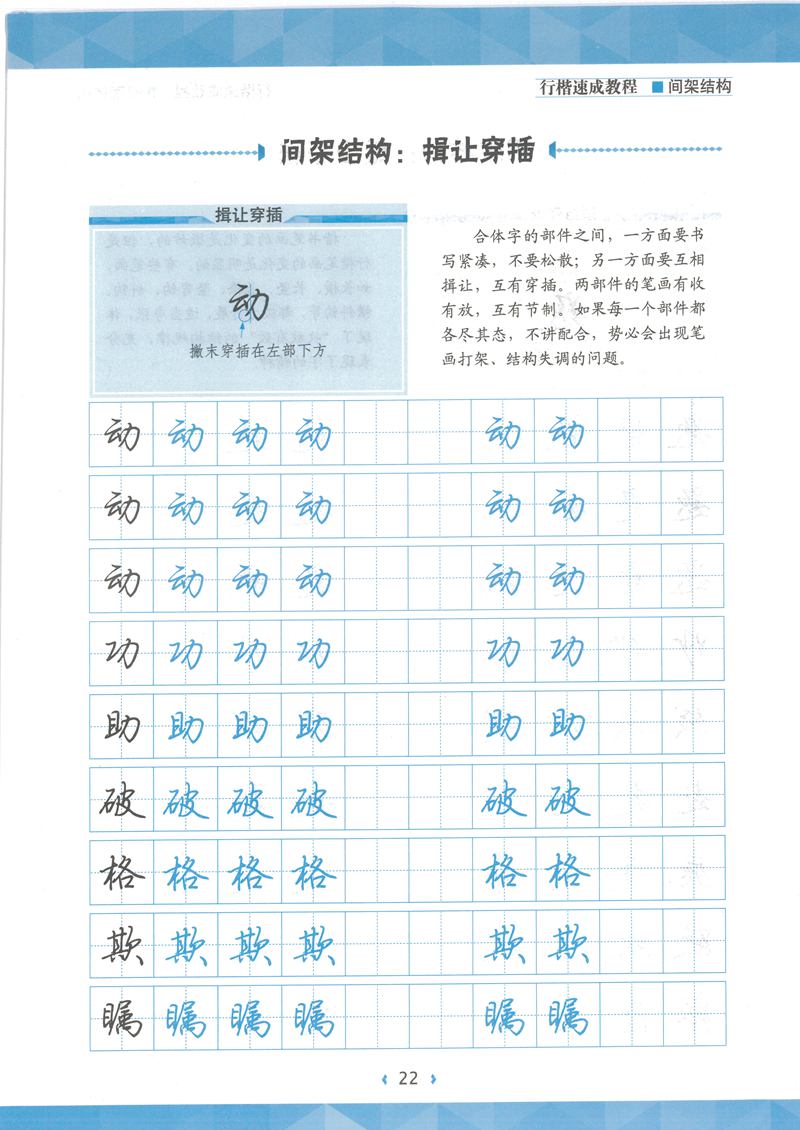 行楷速成教程 ■ 间架结构
间架结构：揖让穿插
揖让穿插
动
撇末穿插在左部下方
合体字的部件之间，一方面要书
写紧凑，不要松散；另一方面要互相
揖让，互有穿插。两部件的笔画有收
有放，互有节制。如果每一个部件都
各尽其态，不讲配合，势必会出现笔
画打架、结构失调的问题。
动 动 动 动 动 动
动 动 动 动 动 动
动 动 动 动 动 动
功 功 功 功 功 功
助 助 助 助 助 助
破 破 破 破 破 破
格 格 格 格 格 格
欺 欺 欺 欺 欺 欺
瞩 瞩 瞩 瞩 瞩 瞩
22